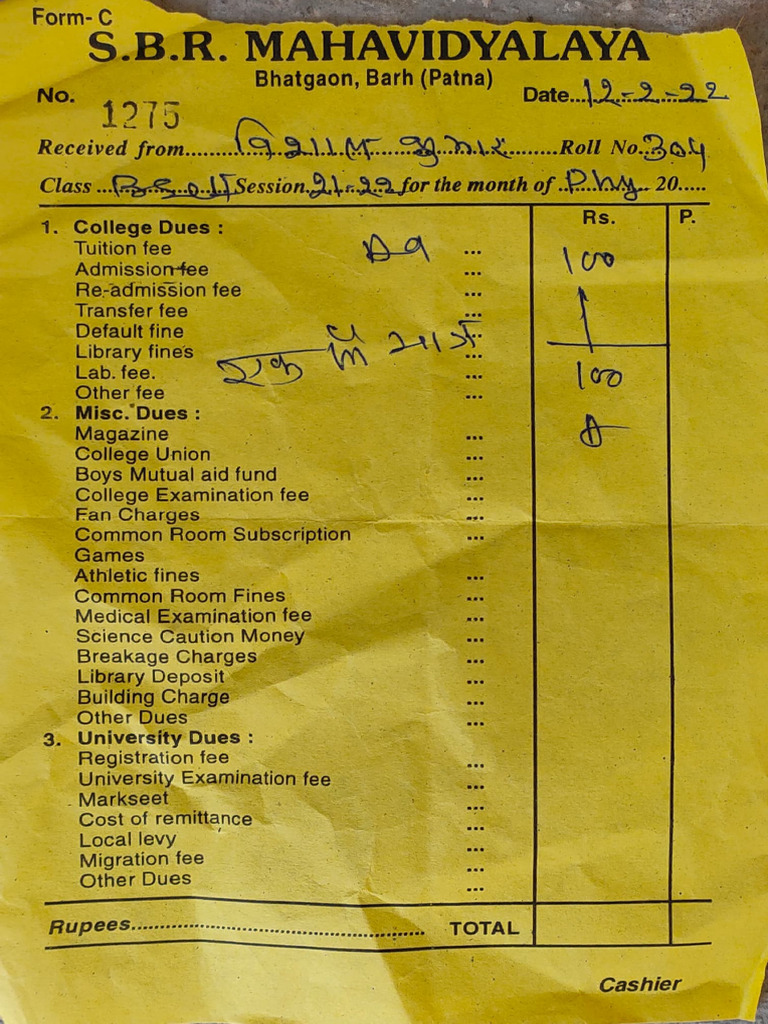 Form- C
S.B.R. MAHAVIDYALAYA
Bhatgaon, Barh (Patna)
No. 1275 Date...12-2-22
Received from......... कुमार.........Roll No.304
Class ...B.Sc II Session.21-22 for the month of ..Phy.. 20.....
Rs. P.
1. College Dues :
Tuition fee ... 100
Admission fee ...
Re-admission fee ...
Transfer fee ...
Default fine ...
Library fines ...
एक में मार्ज
Lab. fee. ... 100
Other fee ...
2. Misc. Dues :
Magazine ...
College Union ...
Boys Mutual aid fund ...
College Examination fee ...
Fan Charges ...
Common Room Subscription ...
Games
Athletic fines ...
Common Room Fines ...
Medical Examination fee ...
Science Caution Money ...
Breakage Charges ...
Library Deposit ...
Building Charge ...
Other Dues ...
3. University Dues :
Registration fee ...
University Examination fee ...
Markseet ...
Cost of remittance ...
Local levy ...
Migration fee ...
Other Dues ...
Rupees.................................................. TOTAL
Cashier